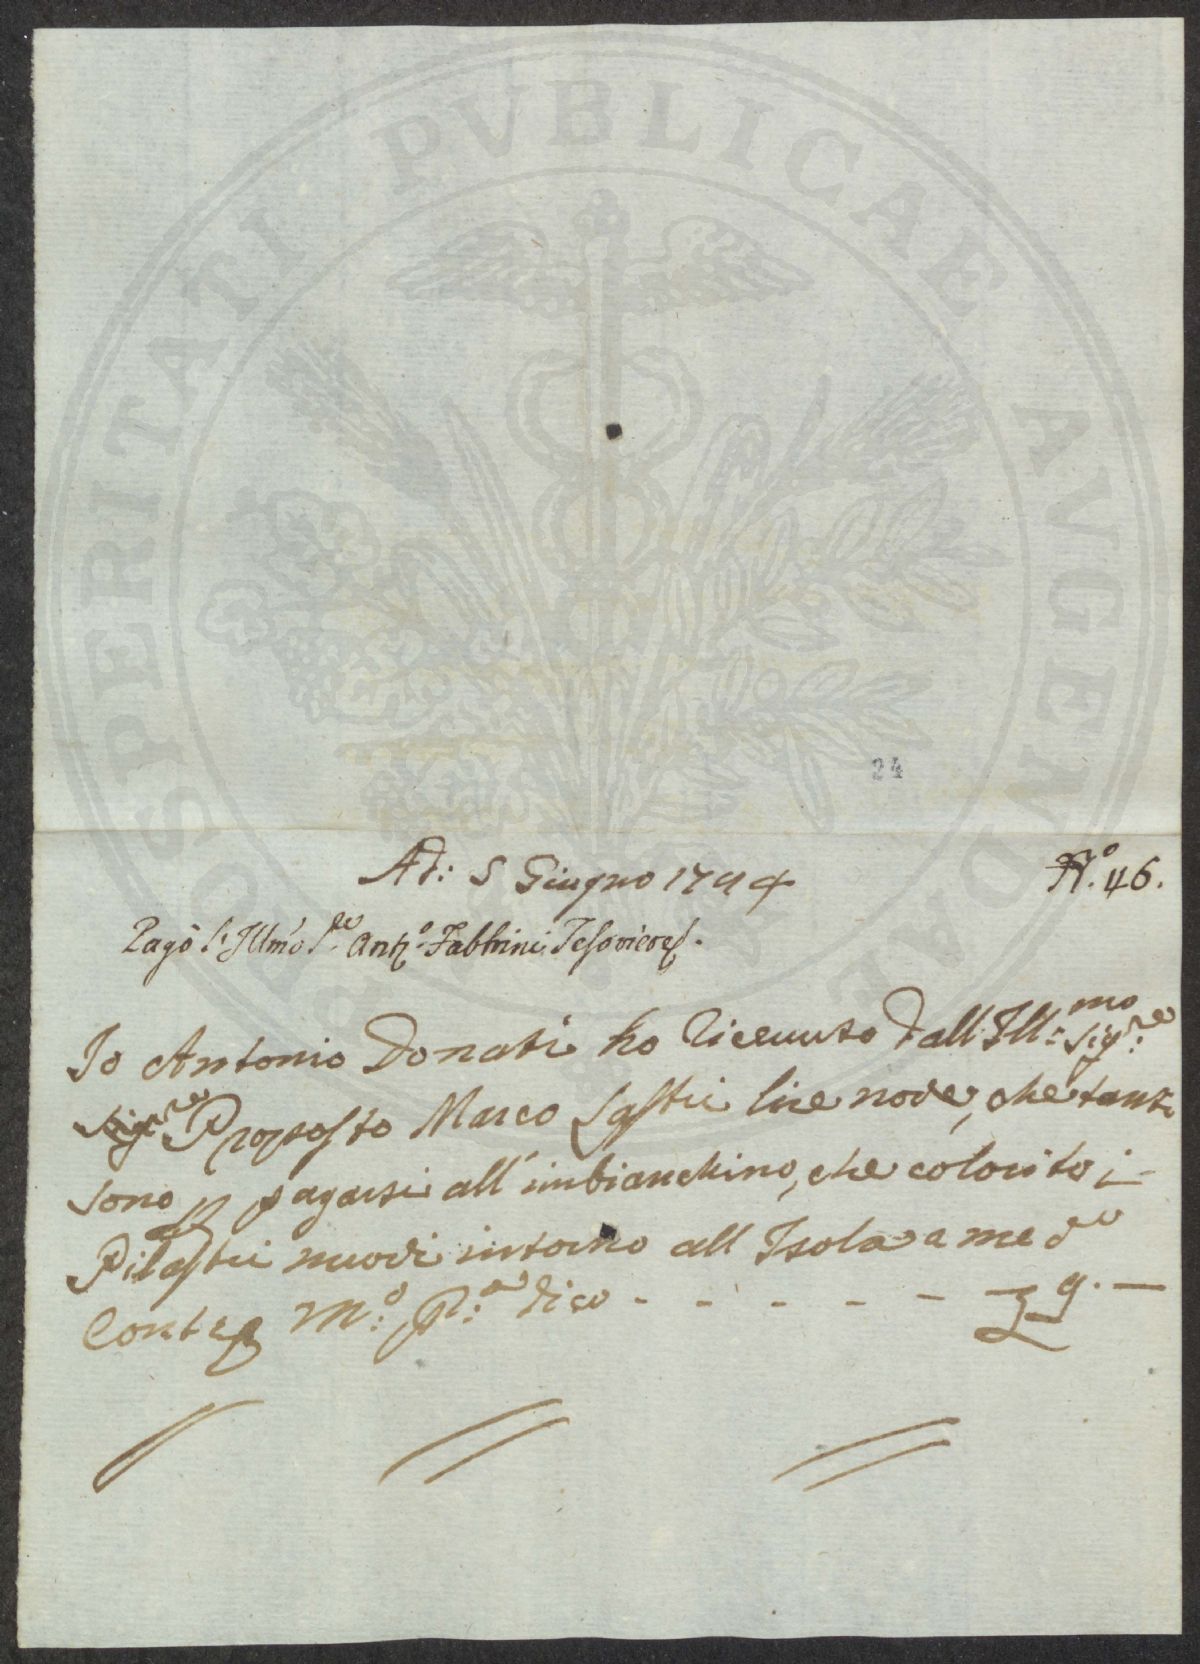 PROSPERITATI PVBLICAE AVGENDAE
24
Ad: 5 Giugno 1794
N.º 46.
Pagò l'Illmo Sre Antº Fabbrini Tesoriere.
Io Antonio Donati ho riceuuto dall'Ill:mo Sig:re
Sig:re Proposto Marco Lastri lire nove, che tante
sono p pagarsi all'imbianchino, che colorito i
Pilastri nuovi intorno all Isola a me dº
Conte p M:º P:a dico - - - - - £ 9. —